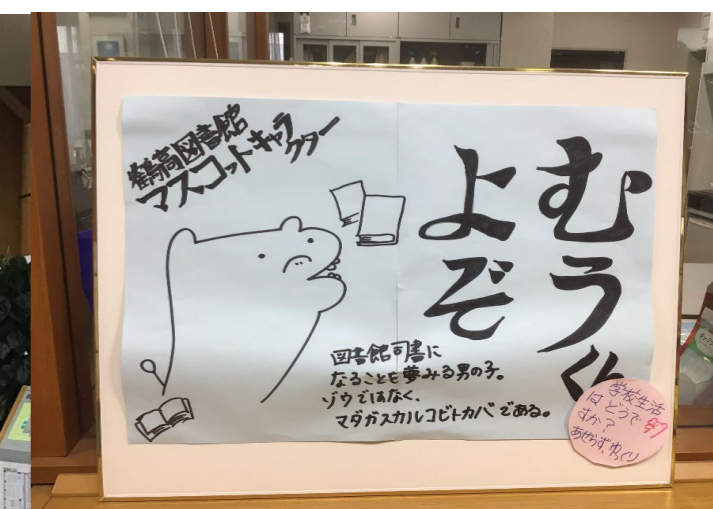 鶴高図書館
マスコットキャラクター
よむぞうくん
図書館司書に
なることを夢みる男の子。
ゾウではなく、
マダガスカルコビトカバである。
学校生活
はどうで
すか？
あせらず、ゆっくり